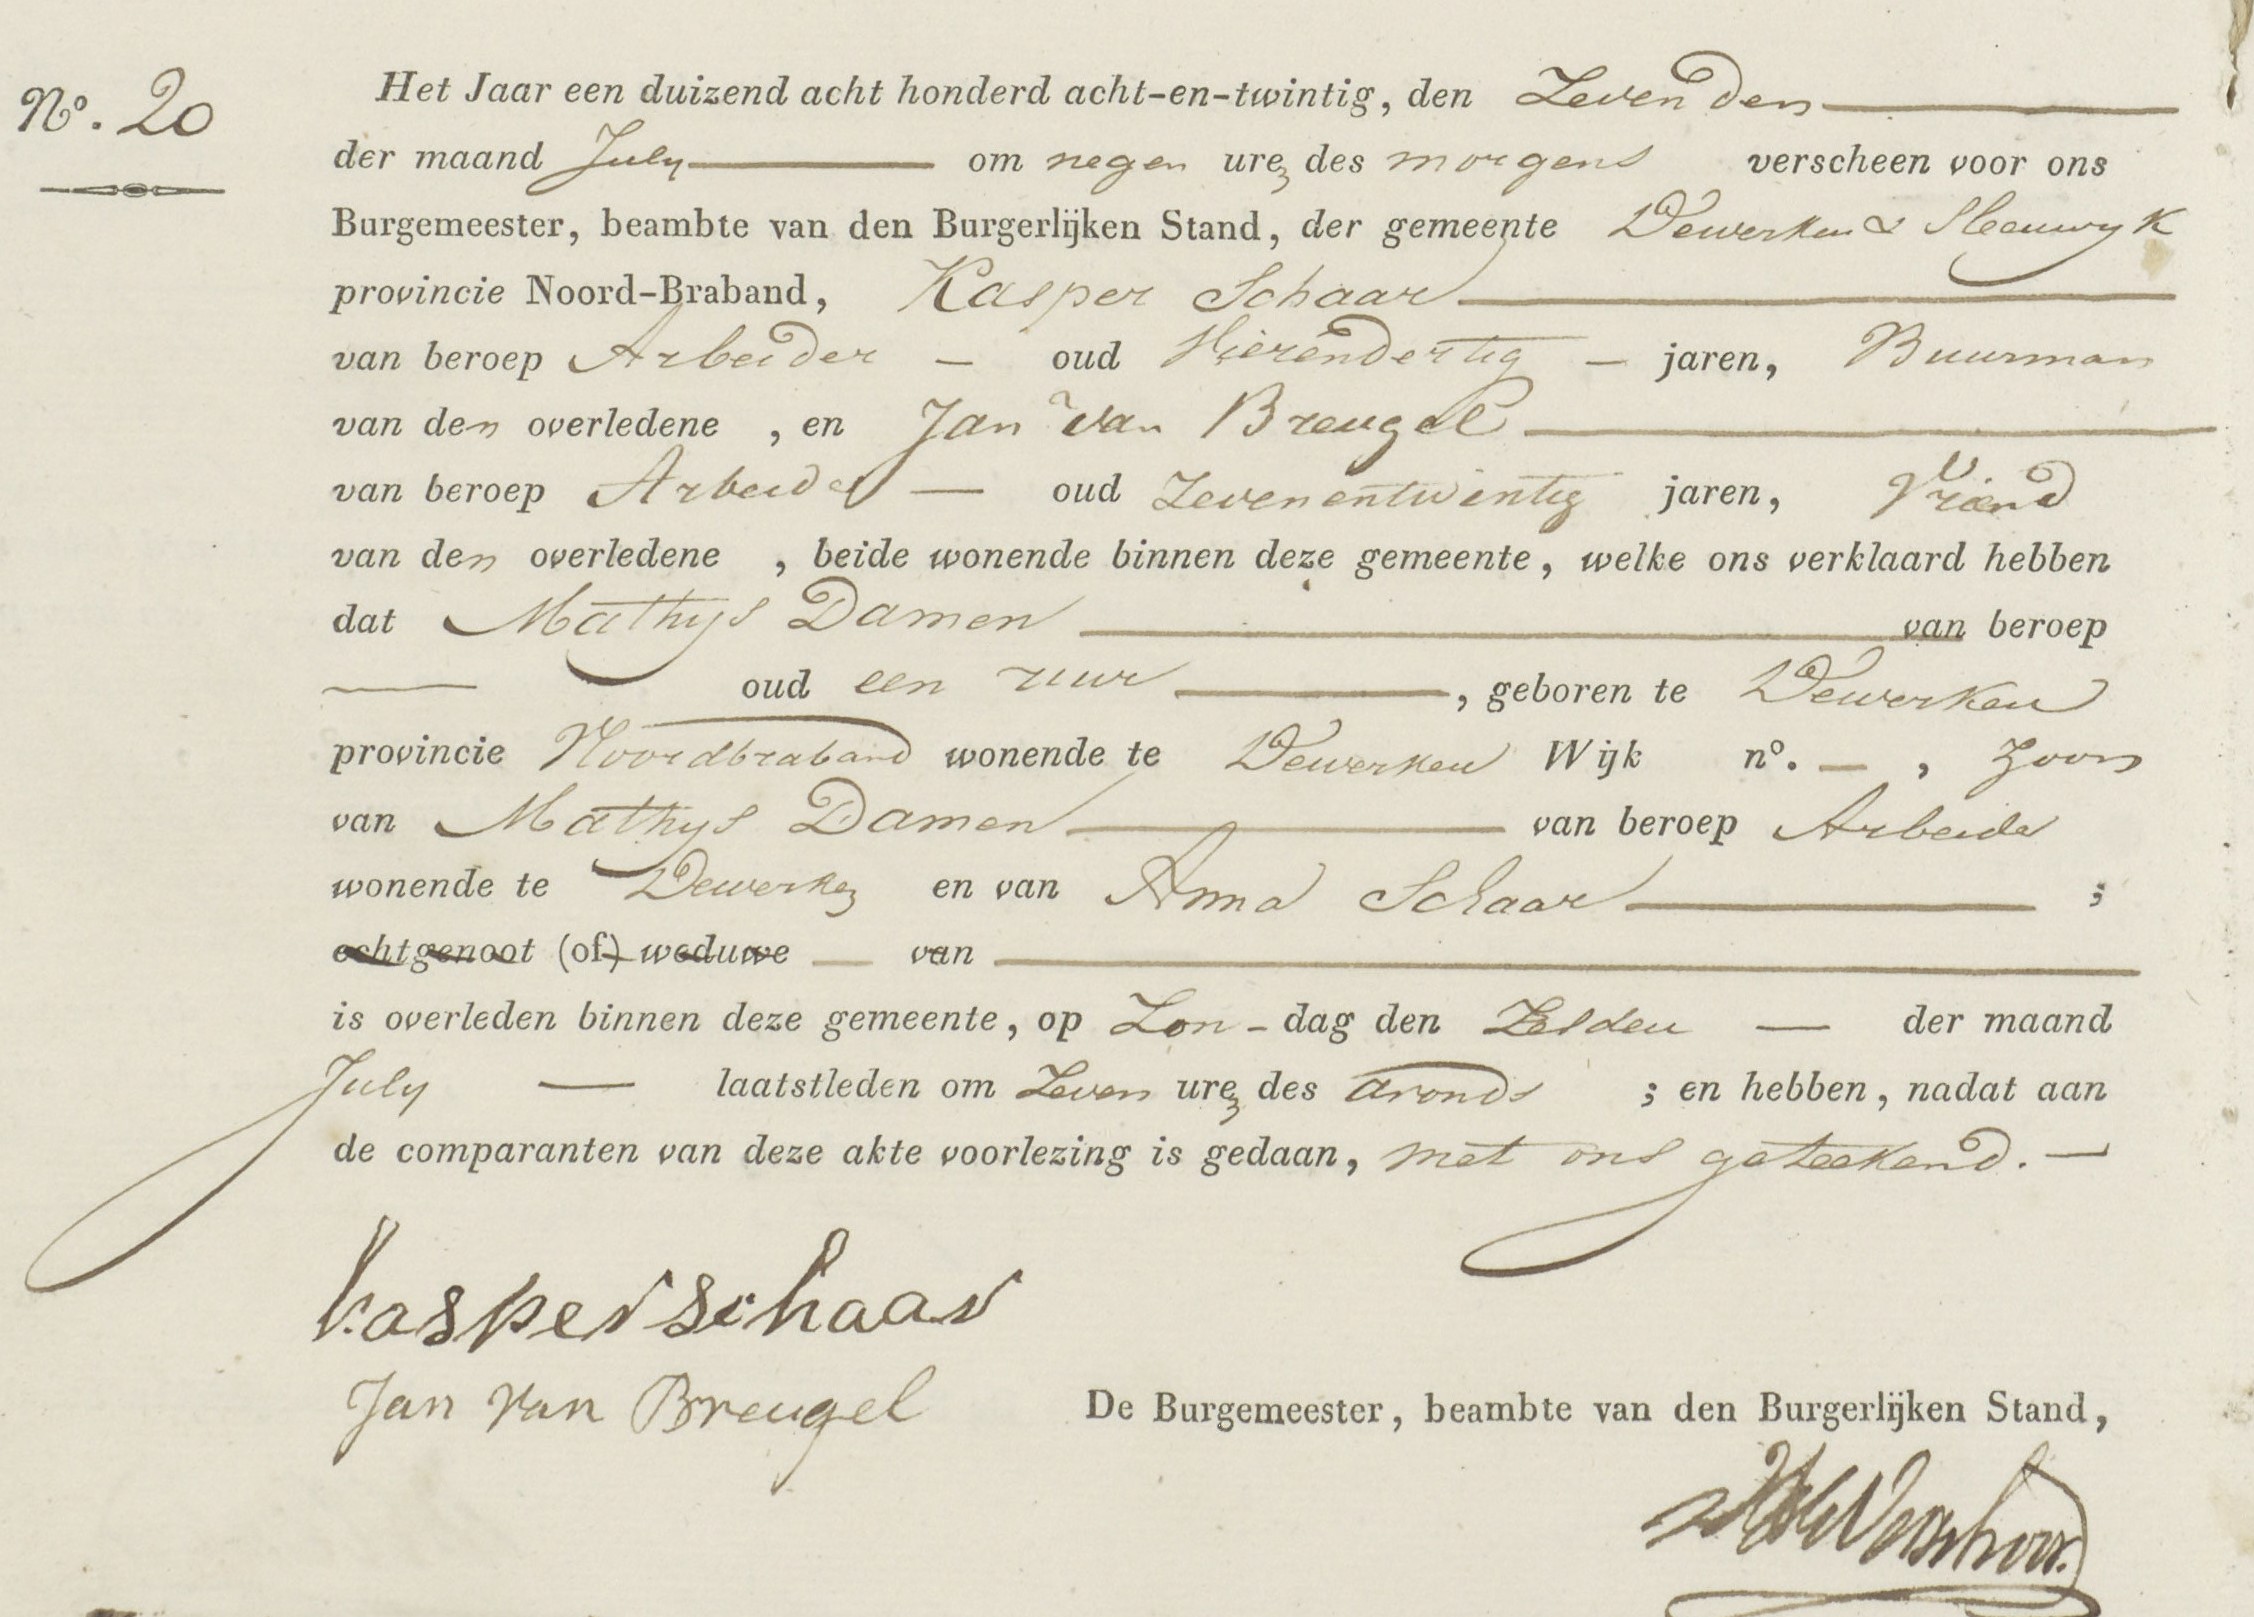 N.º 20
Het Jaar een duizend acht honderd acht-en-twintig, den Zevenden
der maand July om negen urez des morgens verscheen voor ons
Burgemeester, beambte van den Burgerlijken Stand, der gemeente Dewerken & Sleeuwyk
provincie Noord-Braband, Kasper Schaar
van beroep Arbeider — oud Vierendertig — jaren, Buurman
van den overledene , en Jan van Breugel
van beroep Arbeider — oud Zevenentwintig jaren, Vriend
van den overledene , beide wonende binnen deze gemeente, welke ons verklaard hebben
dat Mathys Damen van beroep
— oud een uur , geboren te Dewerken
provincie Noordbraband wonende te Dewerken Wijk nº. — , Zoon
van Mathys Damen van beroep Arbeider
wonende te Dewerken en van Anna Schaar ;
echtgenoot (of) weduwe — van
is overleden binnen deze gemeente, op Zon-dag den Zesden — der maand
July — laatstleden om Zeven urez des avonds ; en hebben, nadat aan
de comparanten van deze akte voorlezing is gedaan, met ons geteekend. —
Kasper schaar
Jan van Breugel
De Burgemeester, beambte van den Burgerlijken Stand,